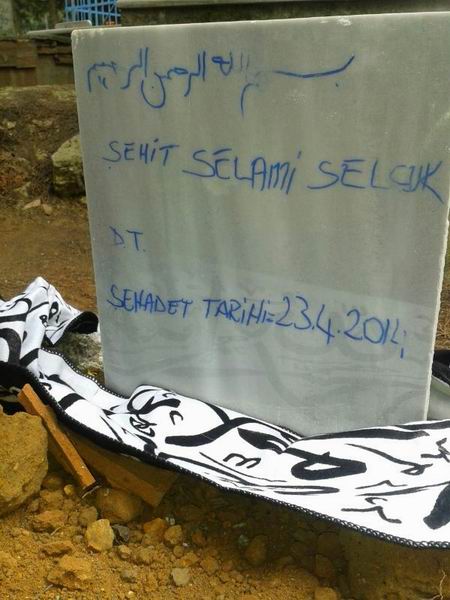 بسم الله الرحمن الرحيم
ŞEHİT SELAMİ SELÇUK
D.T.
ŞEHADET TARİHİ=23.4.2014